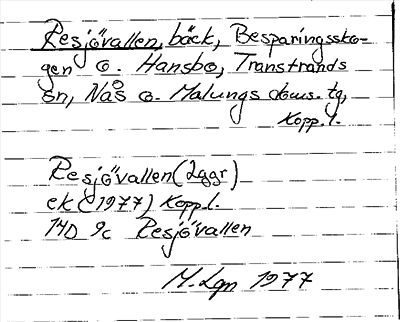 Resjövallen, bäck, Besparingssko-
gen o. Hansbo, Transtrands
sn, Nås o. Malungs doms. tg,
Kopp. l.
Resjövallen (2ggr)
ek (1977) Kopp. l.
14D 9c Resjövallen
M. Lgn 1977